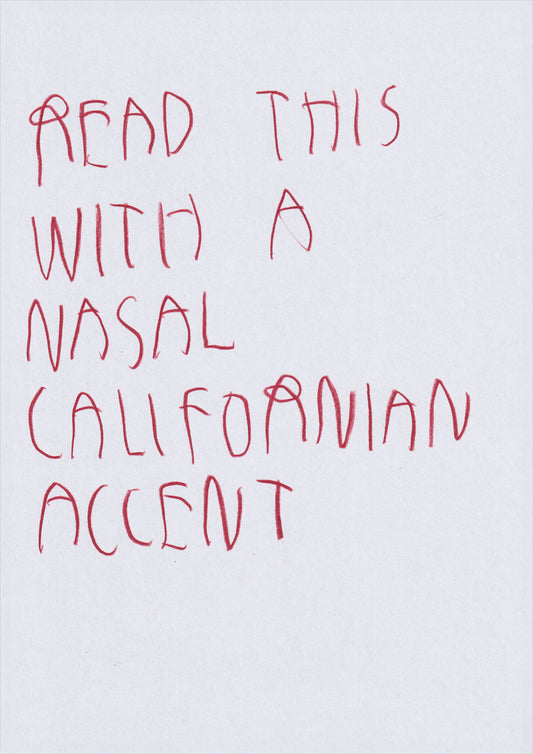 READ THIS
WITH A
NASAL
CALIFORNIAN
ACCENT